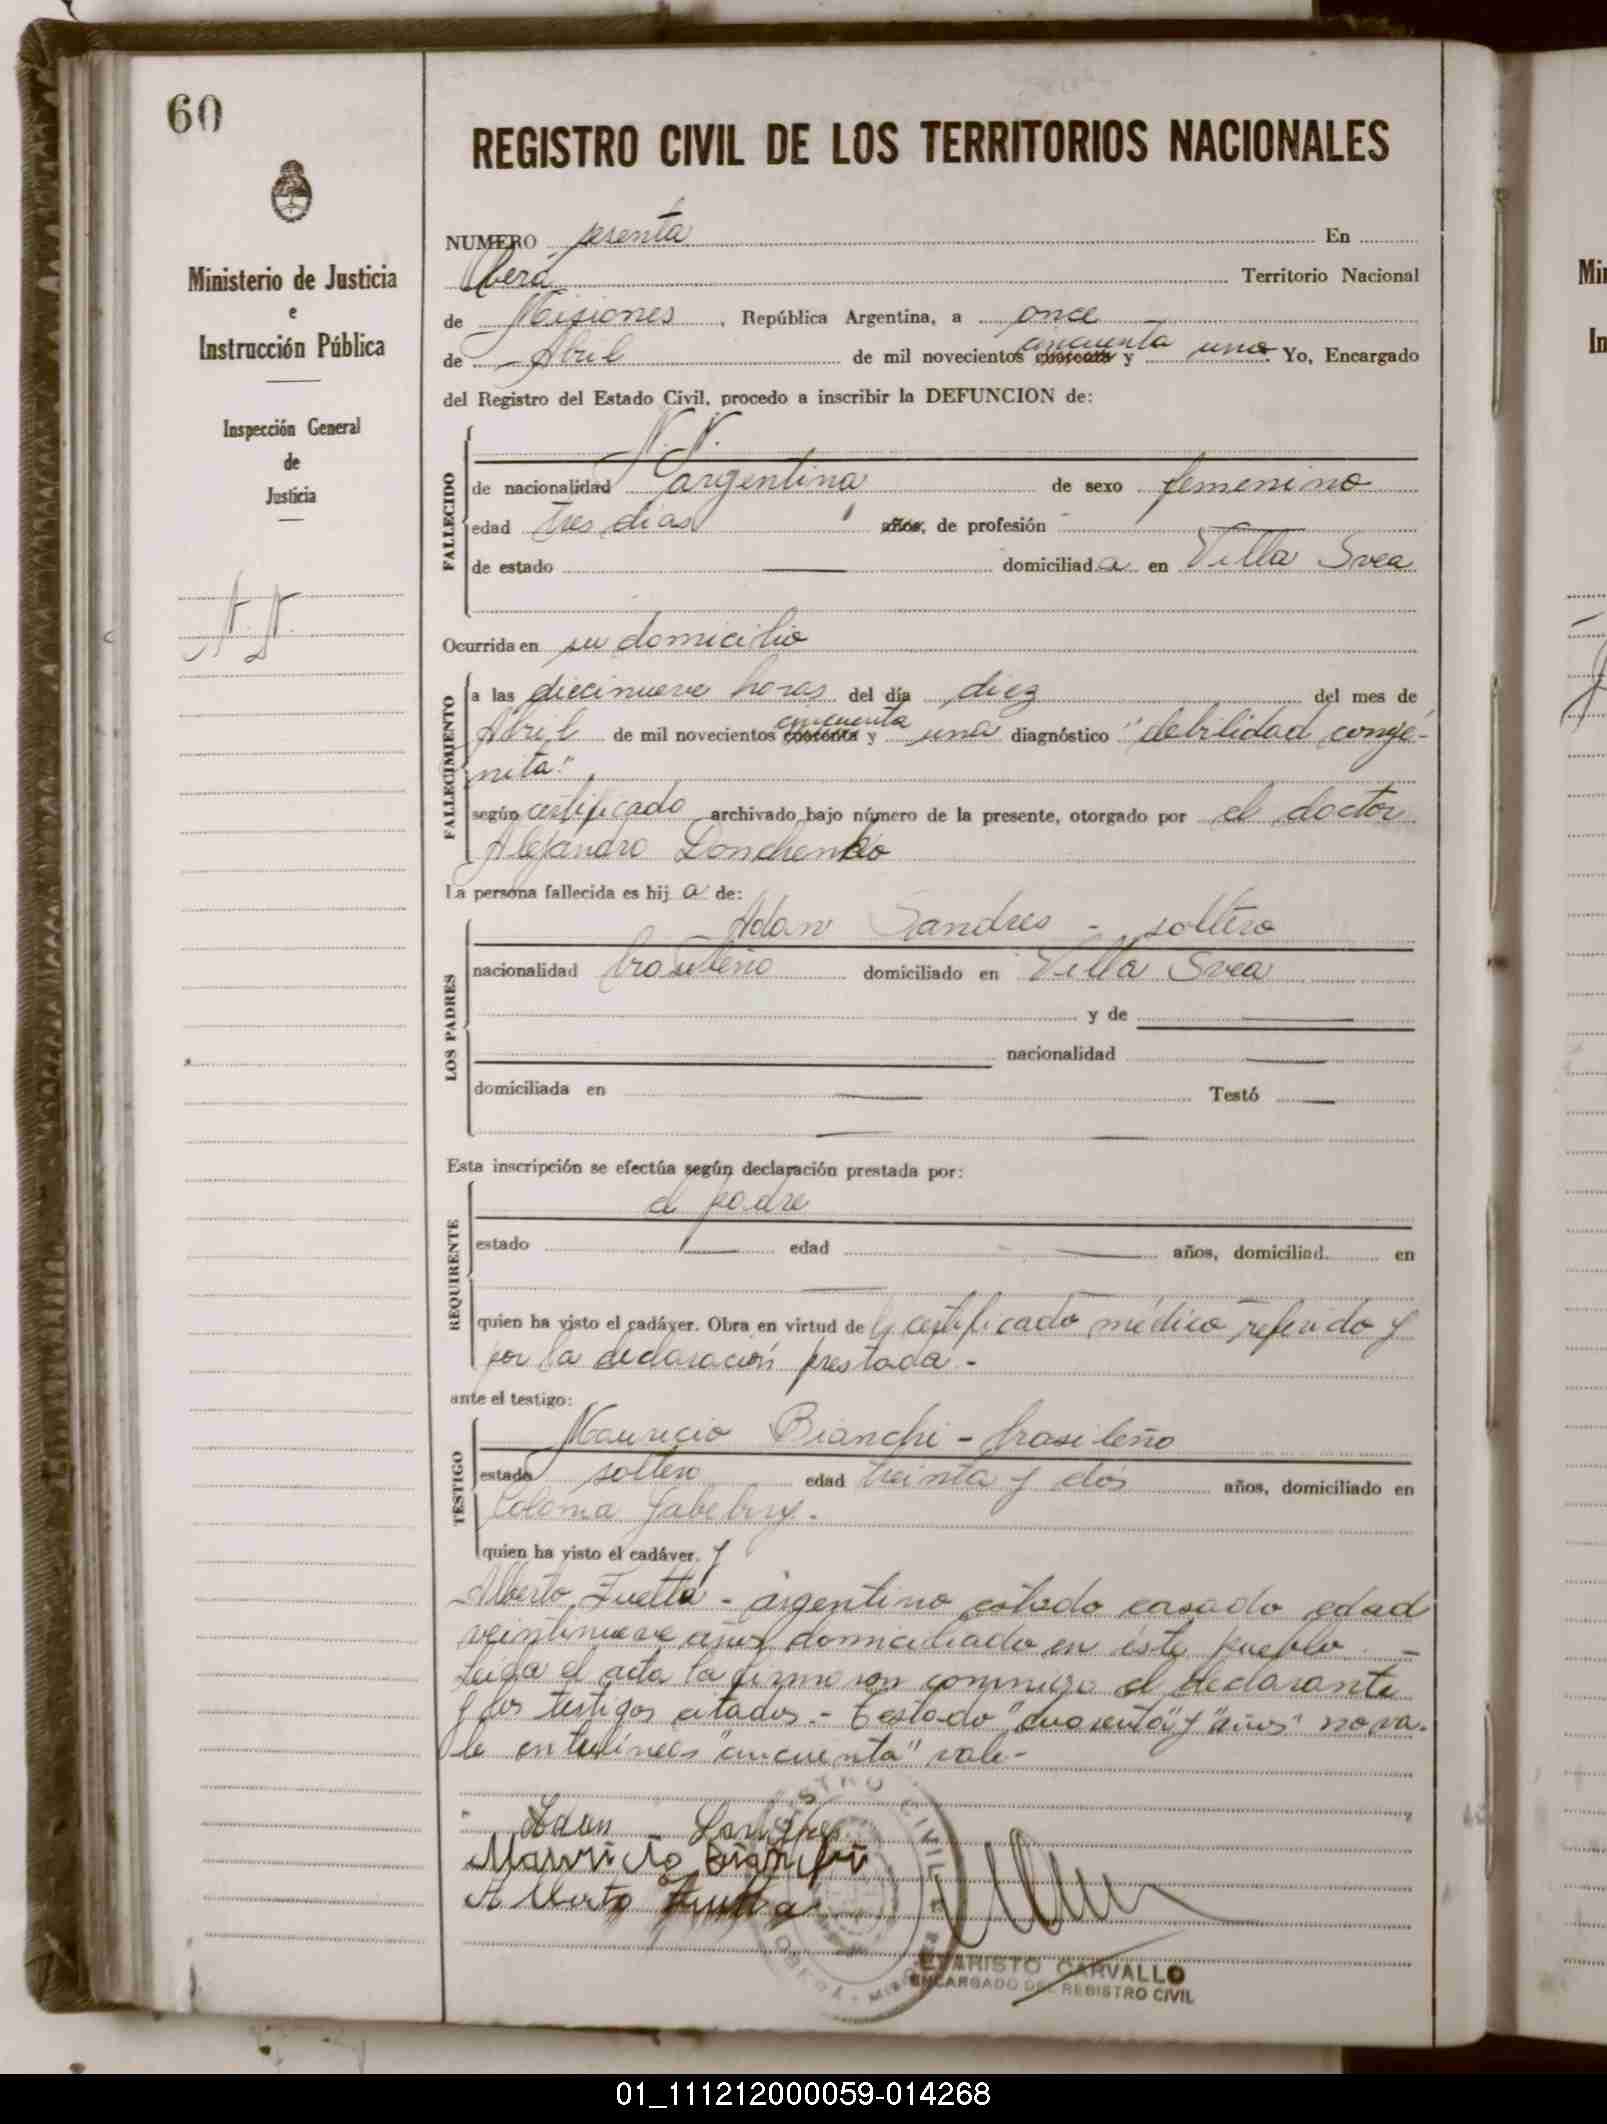 60
Ministerio de Justicia
e
Instrucción Pública
Inspección General
de
Justicia
N. N.
REGISTRO CIVIL DE LOS TERRITORIOS NACIONALES
NUMERO sesenta En
Oberá Territorio Nacional
de Misiones, República Argentina, a once
cincuenta
de Abril de mil novecientos cuarenta y uno Yo, Encargado
del Registro del Estado Civil, procedo a inscribir la DEFUNCION de:
FALLECIDO
N. N.
de nacionalidad argentina de sexo femenino
edad tres dias años, de profesión
de estado domiciliada en Villa Svea
Ocurrida en su domicilio
FALLECIMIENTO
a las diecinueve horas del día diez del mes de
cincuenta
Abril de mil novecientos cuarenta y uno diagnóstico "debilidad congé-
nita"
según certificado archivado bajo número de la presente, otorgado por el doctor
Alejandro
La persona fallecida es hija de:
LOS PADRES
Adan Sandres - soltero
nacionalidad brasileño domiciliado en Villa Svea
y de
nacionalidad
domiciliada en Testó
Esta inscripción se efectúa según declaración prestada por:
REQUIRENTE
el padre
estado edad años, domiciliad en
quien ha visto el cadáver. Obra en virtud del certificado médico referido y
por la declaración prestada -
ante el testigo:
TESTIGO
Mauricio Bianchi - brasileño
estado soltero edad treinta y dos años, domiciliado en
Colonia
quien ha visto el cadáver. y
Alberto - argentino estado casado edad
veintinueve años domiciliado en éste pueblo -
Leída el acta la firmaron conmigo el declarante
y los testigos citados.- Testado "cuarenta" y "años" no va-
le entrelíneas "cincuenta" vale-
Adan
Mauricio Bianchi
Alberto
REGISTRO CIVIL
OBERÁ - MISIONES
EVARISTO CARVALLO
ENCARGADO DEL REGISTRO CIVIL
01_111212000059-014268